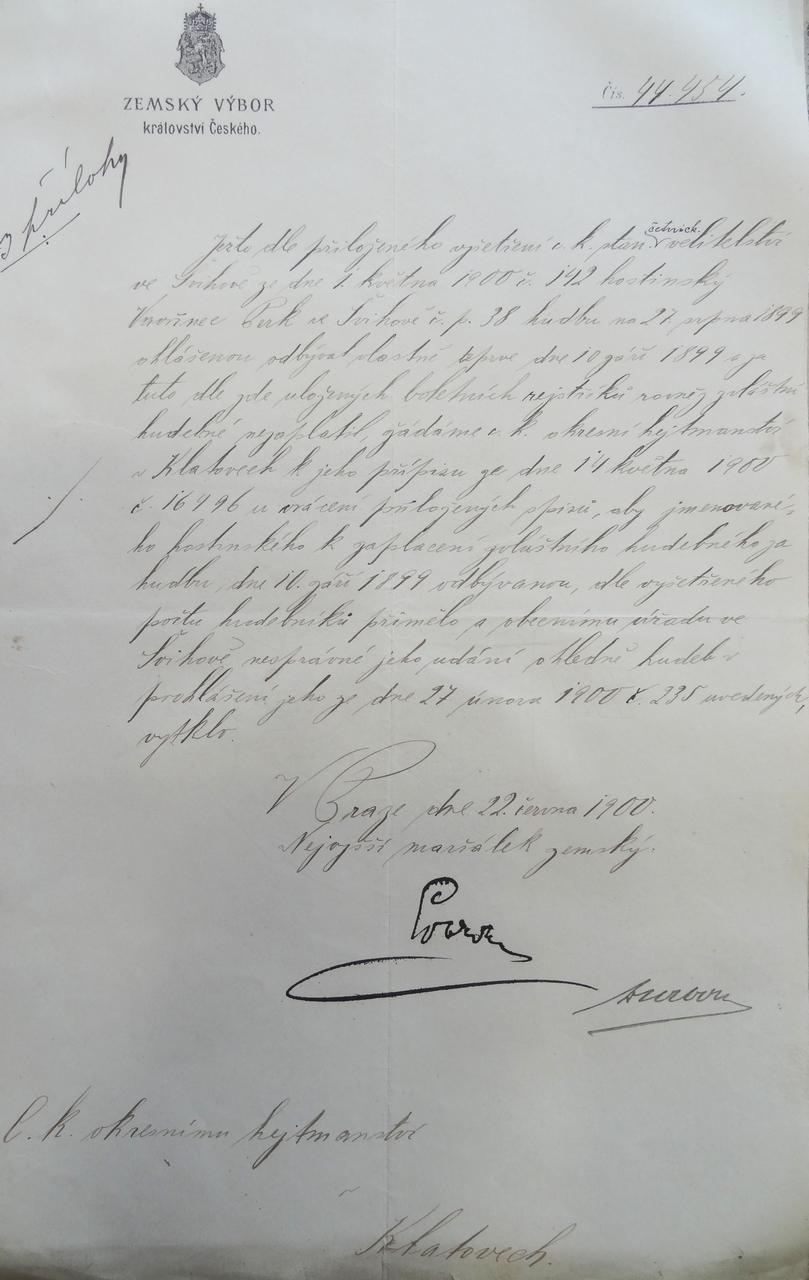 ZEMSKÝ VÝBOR
království Českého.
Čís. 44.454.
3 přílohy
Ježto dle přiloženého vyšetření c. k. stan. četnick. velitelství
ve Švihově ze dne 1. května 1900 č. 142 hostinský
Vavřinec Perk ve Švihově č. p. 38 hudbu na 27. srpna 1899
ohlášenou odbýval vlastně teprve dne 10 září 1899 a za
tuto dle zde uložených boletních rejstříků rovněž zvláštní
hudebné nezaplatil, žádáme c. k. okresní hejtmanství
v Klatovech k jeho přípisu ze dne 14 května 1900
č. 16496 u vrácení přiložených spisů, aby jmenované-
ho hostinského k zaplacení zvláštního hudebného za
hudbu, dne 10. září 1899 odbývanou, dle vyšetřeného
počtu hudebníků přimělo a obecnímu úřadu ve
Švihově, nesprávné jeho udání ohledně hudeb v
prohlášení jeho ze dne 27. února 1900 č. 235 uvedených,
vytklo.
V Praze dne 22. června 1900.
Nejvyšší maršálek zemský.
C. k. okresnímu hejtmanství
v
Klatovech.